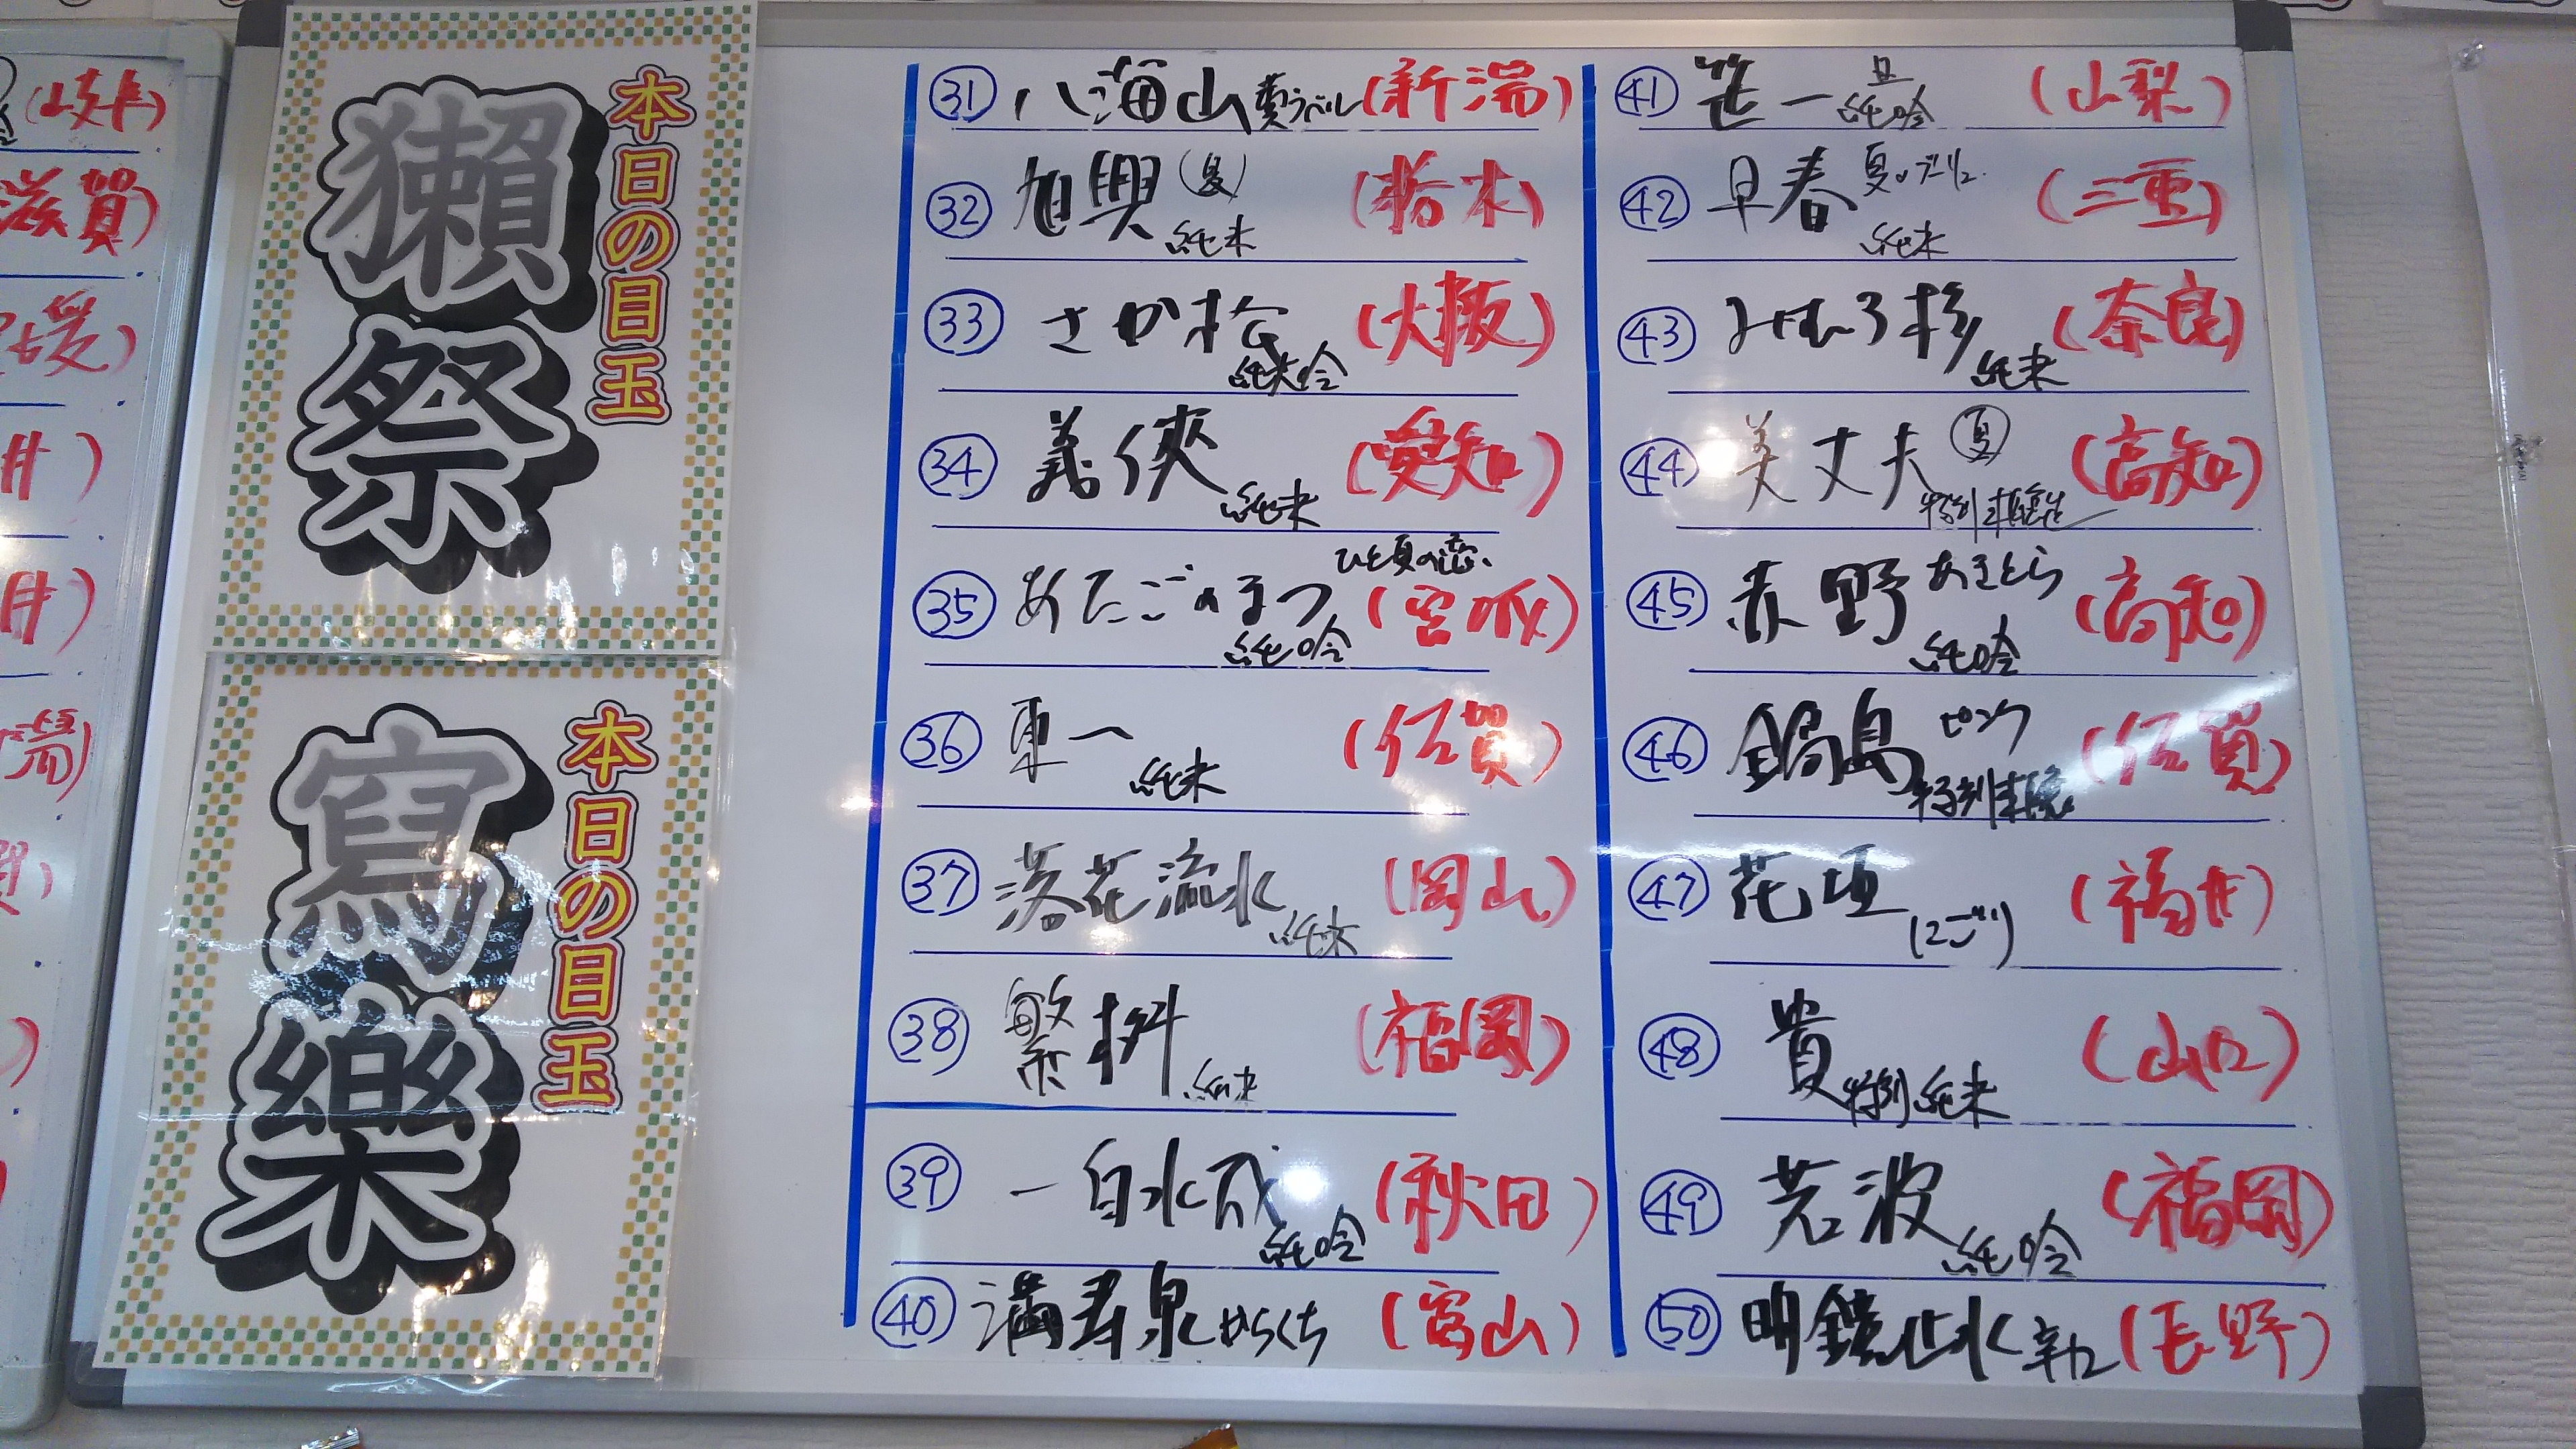 (岐阜)
滋賀)
媛)
井)
井)
本日の目玉
獺祭
本日の目玉
寫樂
㉛ 八海山 夏ラベル (新潟)
㉜ 旭興 (夏) 純米 (栃木)
㉝ さか松 純米吟 (大阪)
㉞ 義侠 純米 (愛知)
㉟ あたごのまつ ひと夏の恋 純吟 (宮城)
㊱ 東一 純米 (佐賀)
㊲ 落花流水 純米 (岡山)
㊳ 繁桝 純米 (福岡)
㊴ 一白水成 純吟 (秋田)
㊵ 満寿泉 からくち (富山)
㊶ 笹一 旦 純吟 (山梨)
㊷ 早春 夏のにごり 純米 (三重)
㊸ みむろ杉 純米 (奈良)
㊹ 美丈夫 夏 特別本醸造 (高知)
㊺ 赤野 あきとら 純吟 (高知)
㊻ 鍋島 ピンク 特別本醸 (佐賀)
㊼ 花垣 (にごり) (福井)
㊽ 貴 特別純米 (山口)
㊾ 若波 純吟 (福岡)
㊿ 明鏡止水 辛口 (長野)